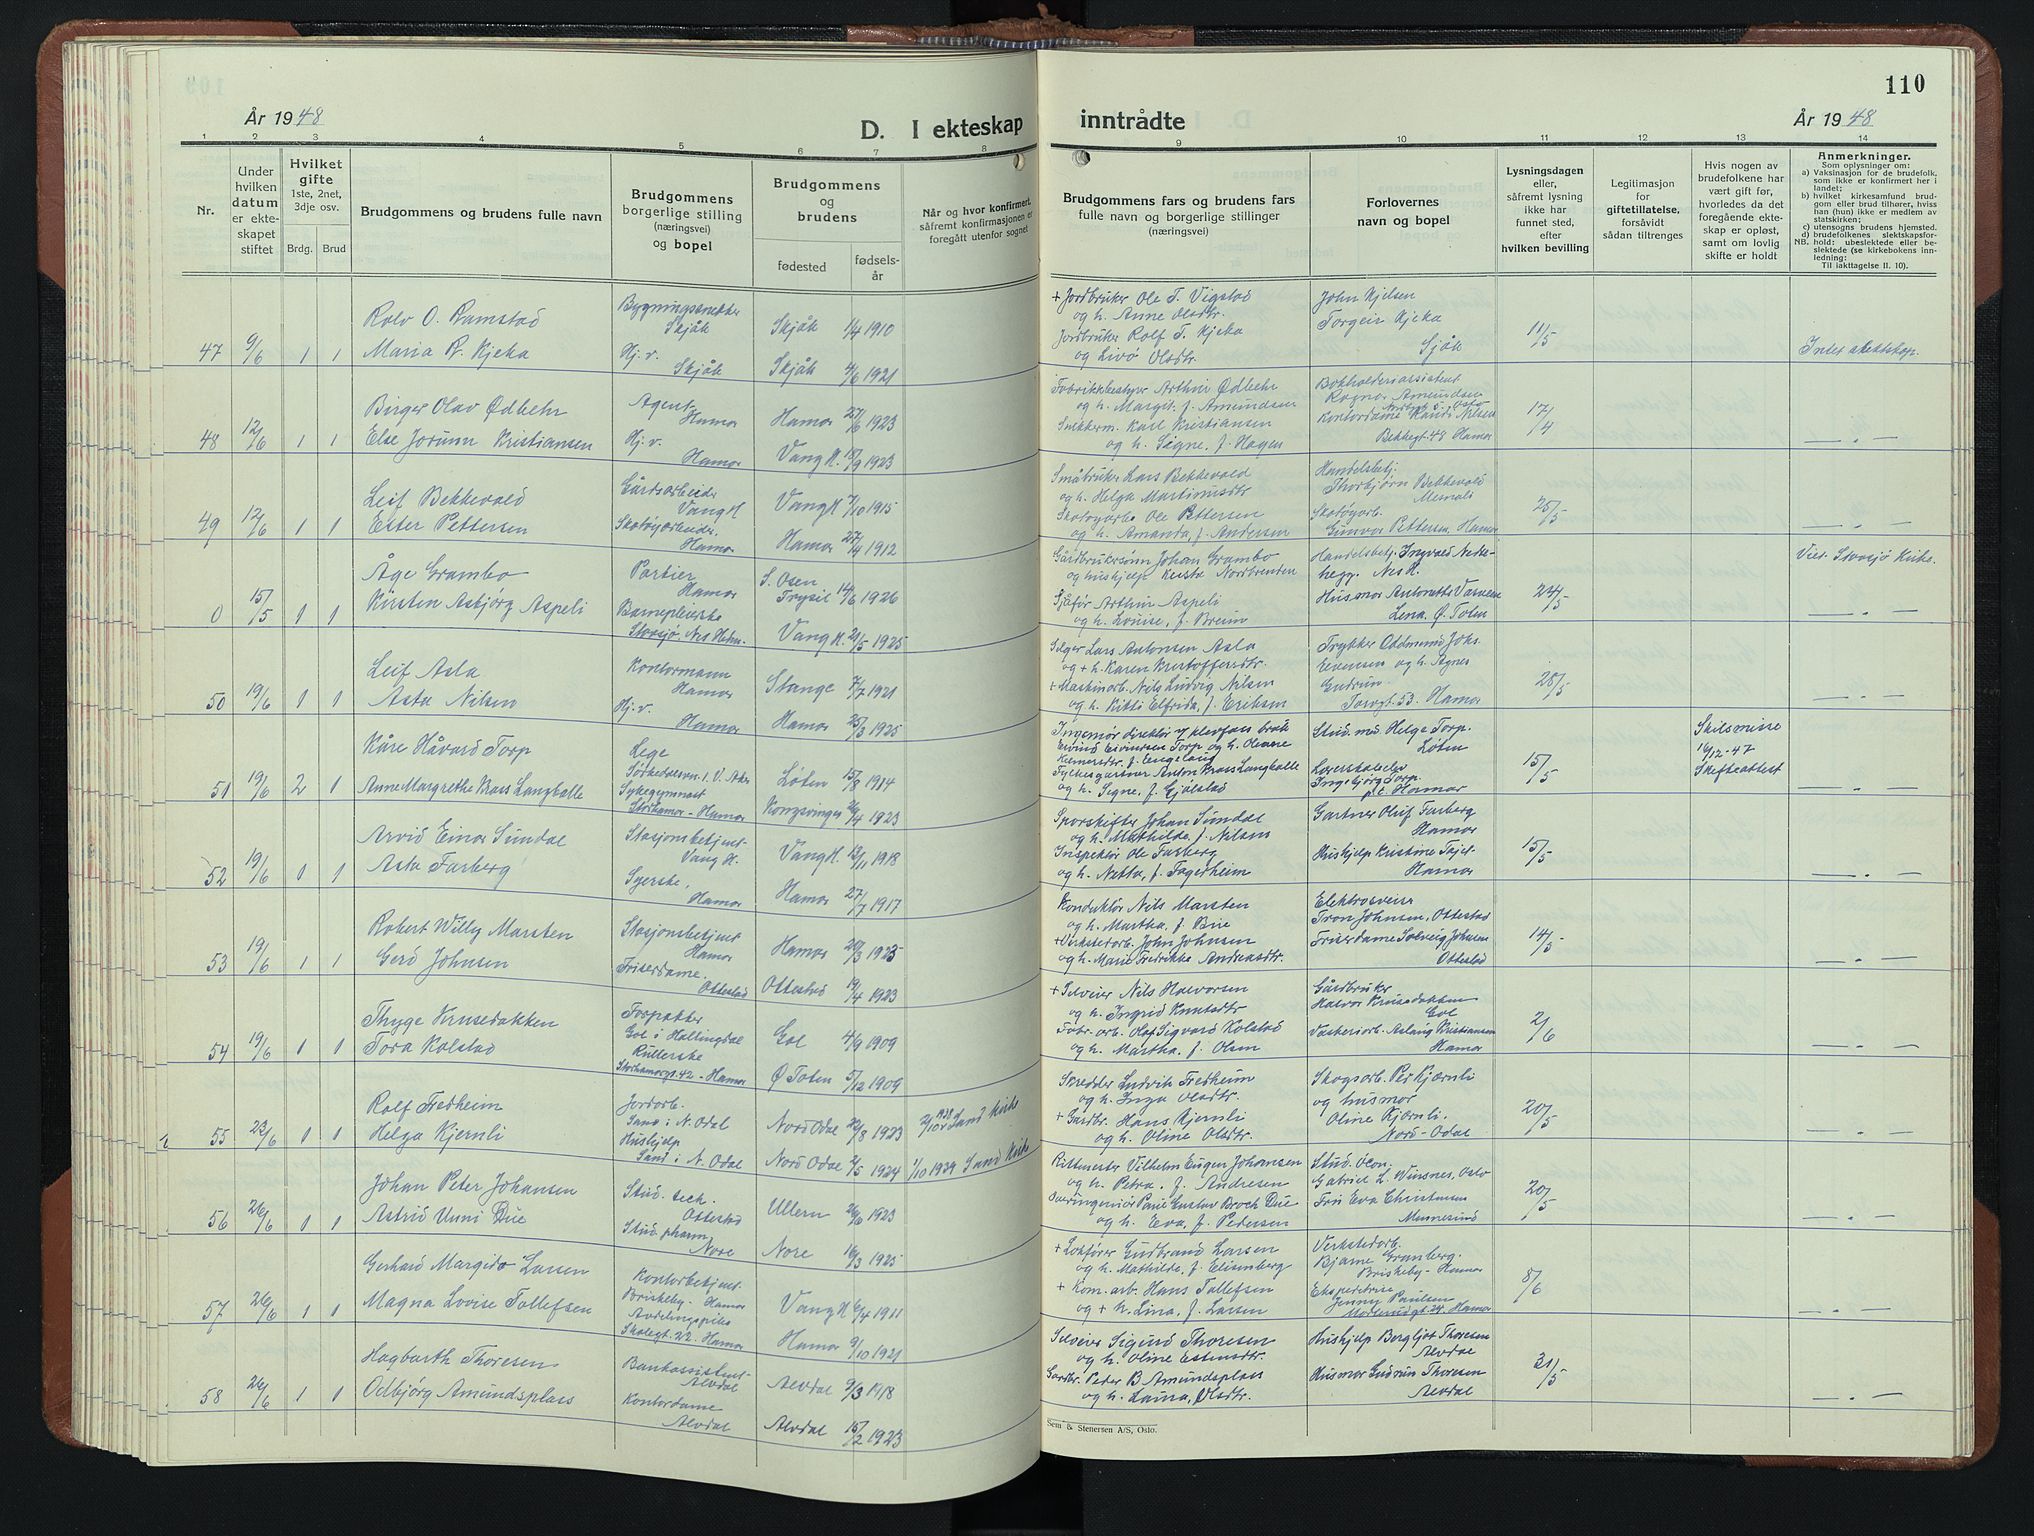 110
År 1948
D. I ekteskap
inntrådte
År 1948
1 2 3 4 5 6 7 8 9 10 11 12 13 14
Nr.
Under
hvilken
datum
er ekte-
skapet
stiftet
Hvilket
gifte
1ste, 2net,
3dje osv.
Brdg. Brud
Brudgommens og brudens fulle navn
Brudgommens
borgerlige stilling
(næringsvei)
og bopel
Brudgommens
og
brudens
fødested
fødsels-
år
Når og hvor konfirmert,
såfremt konfirmasjonen er
foregått utenfor sognet
Brudgommens fars og brudens fars
fulle navn og borgerlige stillinger
(næringsvei)
Forlovernes
navn og bopel
Lysningsdagen
eller,
såfremt lysning
ikke har
funnet sted,
efter
hvilken bevilling
Legitimasjon
for
giftetillatelse,
forsåvidt
sådan tiltrenges
Hvis nogen av
brudefolkene har
vært gift før,
hvorledes da det
foregående ekte-
skap er opløst,
samt om lovlig
skifte er holdt
Anmerkninger.
Som oplysninger om:
a) Vaksinasjon for de brudefolk,
som ikke er konfirmert her i
landet;
b) hvilket kirkesamfund brud-
gom eller brud tilhører, hviss
han (hun) ikke er medlem av
statskirken;
c) utensogns brudens hjemsted.
d) brudefolkenes slektskapsfor-
NB. hold: ubeslektede eller be-
slektede (se kirkebokens inn-
ledning:
Til iakttagelse II. 10).
47 9/6 1 1
Rolv O. Ramstad
Maria R. Kjeka
Bygningssnekker
Skjåk
Hj. v.
Skjåk
Skjåk 1/4 1910
Skjåk 4/6 1921
+ Jordbruker Ole T. Vigstad
og h. Anne Olsdtr.
Jordbruker Rolf T. Kjeka
og Livö Olsdtr.
John Kjelsen
Torgeir Kjeka
Sjåk
11/5
Intet slektskap.
48 12/6 1 1
Birger Olav Ødbehr
Else Jorunn Kristiansen
Agent
Hamar
Hj. v.
Hamar
Hamar 27/6 1923
Vang H. 18/9 1923
Fabrikkbestyrer Arthur Ødbehr
og h. Margit f. Amundsen
Snikkerm. Karl Kristiansen
og h. Signe, f. Hagen
Bokholderiassistent
Ragnar Amundsen
Kontordame Randi Nilsen
Bekkegt. 48 Hamar
17/4
— „ —
49 12/6 1 1
Leif Bekkevold
Ester Pettersen
Gårdsarbeider
Vang H
Skotøyarbeider,
Hamar
Vang H 7/10 1915
Hamar 27/4 1912
Småbruker Lars Bekkevold
og h. Helga Martinusdtr
Skotøyarb. Ole Pettersen
og h. Amanda, f. Andersen
Handelsbetj.
Thorbjørn Bekkevold
Mesnali
Skotøyarb.
Gunvor Pettersen, Hamar
25/5
— „ —
0 15/5 1 1
Åge Grambo
Kirsten Asbjørg Aspeli
Portier
Hamar
Barnepleierske
Stavsjø, Nes Hedm.
S. Osen
Trysil 14/6 1926
Vang H. 21/5 1925
Gårdbrukersønn Johan Grambo
og hushjelp Kersta Nordbrenden
Sjåfør Arthur Aspeli
og h. Louise, f. Breim
Handelsbetj. Ingvald Netse-
hegg. Nes H.
Husmor Antonette
Lena, Ø. Toten
24/5
Viet Stavsjø Kirke.
— „ —
50 19/6 1 1
Leif Asla
Asta Nilsen
Kontormann
Hamar
Hj. v.
Hamar
Stange 7/7 1921
Hamar 25/3 1925
Selger Lars Antonsen Asla
og + h. Karen Kristoffersdtr.
+ Maskinarb. Nils Ludvig Nilsen
og h. Kitti Elfrida, f. Eriksen
Trykker Oddmund Johs.
Evensen og h. Agnes
Gudrun
Torvgt. 53. Hamar
28/5
— „ —
51 19/6 2 1
Kåre Håvard Torp
Anne Margrethe Krass Langballe
Lege
Sørkedalsvn. 1. V. Aker
Sykegymnast
Storhamar - Hamar
Løten 15/8 1914
Kongsvinger 26/4 1923
Ingeniør direktør v/ Klevfoss bruk
Eivind Eivindsen Torp og h. Oleane
f. Engelaug
Fylkesgartner Anton Krass Langballe
og h. Signe, f. Gjølstad
Stud. med. Helge Torp.
Løten
Lærerskoleelev
Ingebjørg Torp
p.t. Hamar
15/5
Skilsmisse
16/12-47
Skifteattest
— „ —
52 19/6 1 1
Arvid Einar Sundal
Asta Farberg
Stasjonsbetjent
Vang H.
Syerske,
Hamar
Vang H. 13/11 1918
Hamar 27/7 1917
Sporskifter Johan Sundal
og h. Mathilde, f. Nilsen
Inspektør Ole Farberg
og h. Netta, f. Fagerheim
Gartner Oluf Farberg
Hamar
Hushjelp Kristine Tajet-
Hamar
15/5
— „ —
53 19/6 1 1
Robert Willy Marsten
Gerd Johnsen
Stasjonsbetjent
Hamar
Friserdame.
Ottestad
Hamar 20/3 1923
Ottestad 19/4 1923
Konduktør Nils Marsten
og h. Martha, f. Brie
+ Verkstedarb. John Johnsen
og h. Marie Fredrikke Andreasdtr.
Elektrosveiser
Tron Johnsen, Ottestad
Friserdame Solveig Johnsen
Ottestad
14/5
— „ —
54 19/6 1 1
Thyge Krusedokken
Tora Kolstad
Forpakter
Gol i Hallingdal
Rullerske
Storhamargt. 42 - Hamar
Gol 4/9 1909
Ø Toten 5/12 1909
+ Selveier Nils Halvorsen
og h. Ingrid Knutsdtr
Fabr. arb. Olaf Sigvard Kolstad
og h. Martha. f. Olsen
Gårdbruker
Halvor Krusedokken
Gol
Vaskeriarb. Aslaug Kristiansen
Hamar
2/6
— „ —
55 23/6 1 1
Rolf Fredheim
Helga Kjernli
Jordarb.
Sand i N. Odal
Hushjelp
Sand i N. Odal
Nord Odal 22/8 1923
Nord Odal 2/5 1924
2/10 1938 Sand Kirke
1/10 1939 Sand Kirke
Skredder Ludvik Fredheim
og h. Inga Olsdtr.
+ Gardbr. Hans Kjernli
og h. Oline Olsdtr.
Skogsarb. Per Kjærnli
og husmor
Oline Kjærnli.
Nord-Odal
20/5
56 26/6 1 1
Johan Peter Johansen
Astrid Unni Due
Stud. tech.
Ottestad
Stud. pharm
Nore
Ullern 26/6 1923
Nore 16/3 1925
Rittmester Vilhelm Eugen Johansen
og h. Petra. f. Andresen
Overingeniør Paul Gustav Broch Due
og h. Eva, f. Pedersen
Stud. Ocon.
Gabriel L. Winsnes, Oslo
Fru Eva Christensen
Minnesund
20/5
— „ —
57 26/6 1 1
Gerhard Margido Larsen
Magna Lovise Tollefsen
Kontorbetjent
Briskeby - Hamar
Avdelingspike
Skolegt. 22 - Hamar
Vang H 6/4 1911
Hamar 9/10 1921
+ Lokfører Gudbrand Larsen
og h. Mathilde, f. Elisenberg
+ Kom. arb. Hans Tollefsen
og + h. Lina, f. Larsen
Verkstedarb.
Bjarne Granberg.
Briskeby - Hamar
Ekspeditrise
Jenny Paulsen
24, Hamar
8/6
— „ —
58 26/6 1 1
Hagbarth Thoresen
Odbjörg Amundsplass
Bankassistent
Alvdal
Kontordame
Alvdal
Alvdal 9/3 1918
Alvdal 15/2 1923
Selveier Sigurd Thoresen
og h. Oline Estensdtr.
Gardbr. Peder B Amundsplass
og h. Laura, Olsdtr.
Hushjelp Bergljot Thoresen
Alvdal
Husmor Gudrun Thoresen
Alvdal
31/5
— „ —
Sem & Stenersen A/S, Oslo.